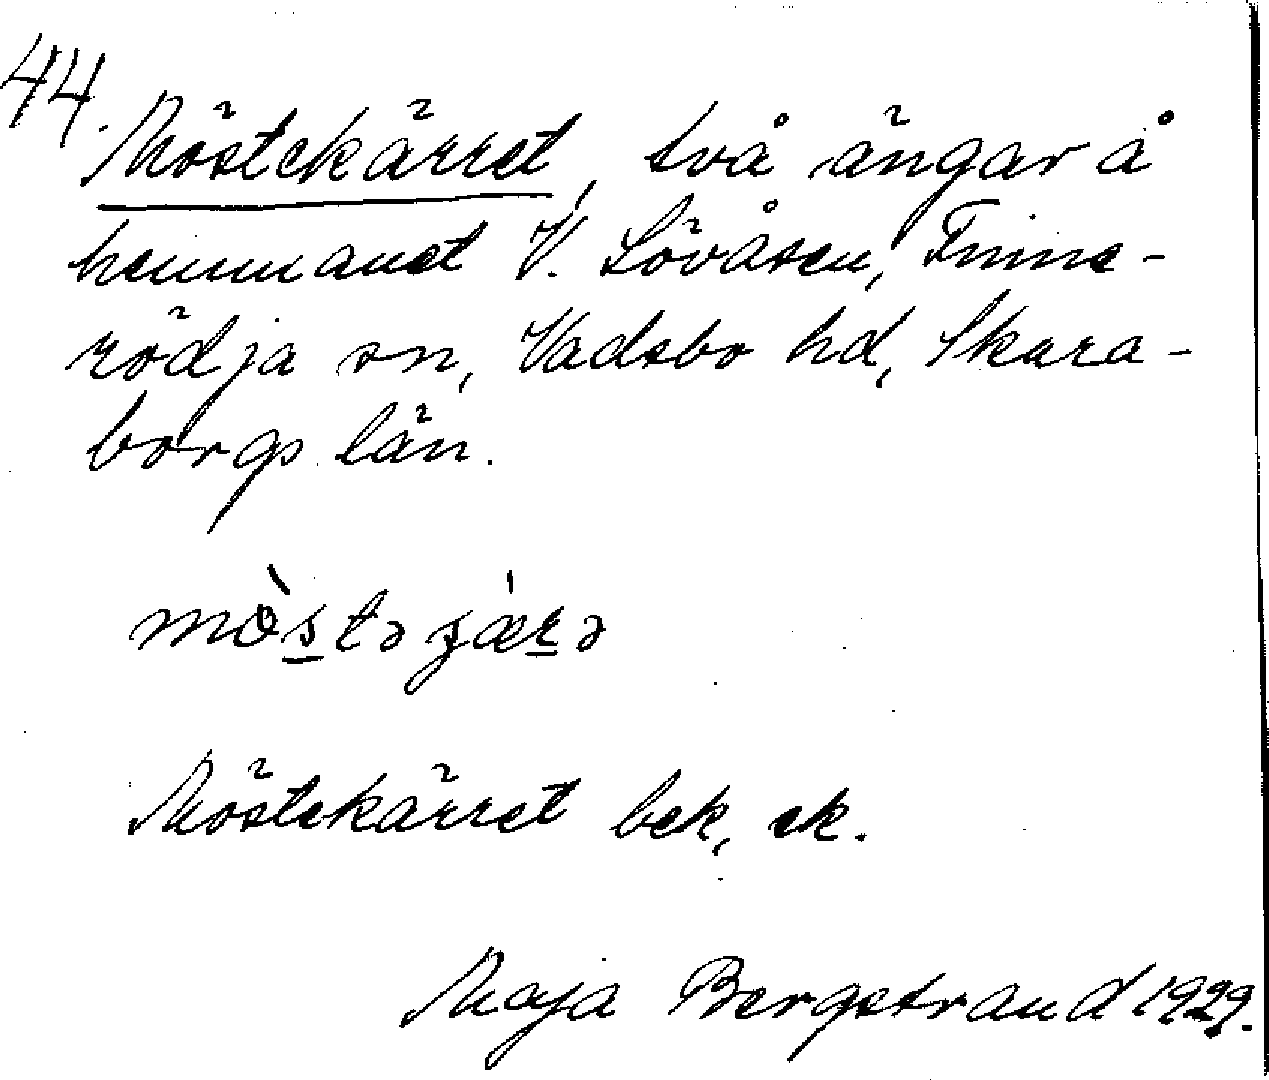 44.
Möstekärret, två ängar å
hemmanet V. Lövåsen, Finne-
rödja sn, Vadsbo hd, Skara-
borgs län.
Möstekärret bek, ek.
Maja Bergstrand 1929.